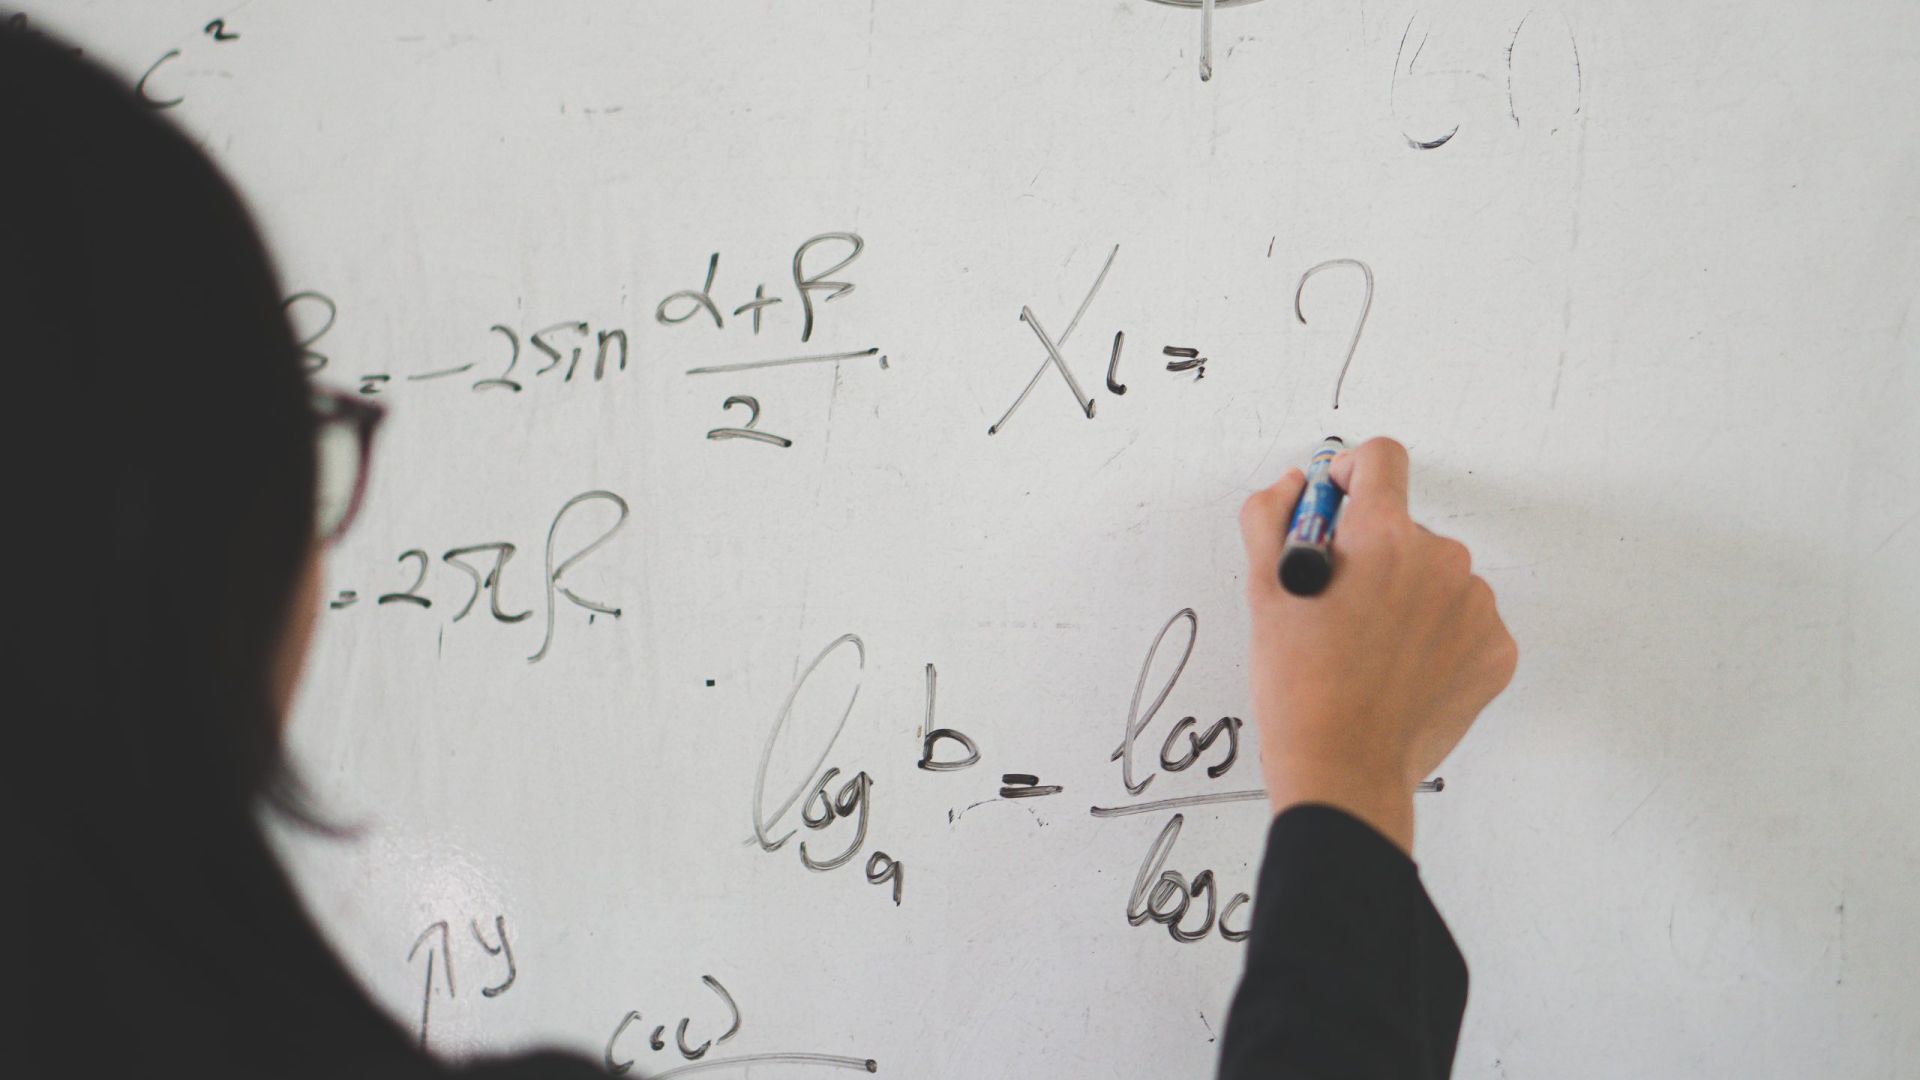 c²
β = -2 sin (α+β)/2
X₁ = ?
= 2πR
logₐ b = log / log c
y